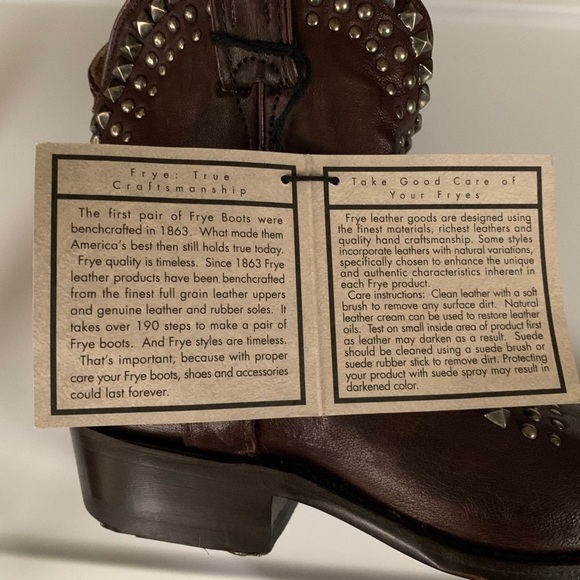 Frye: True
Craftsmanship
The first pair of Frye Boots were
benchcrafted in 1863. What made them
America's best then still holds true today.
Frye quality is timeless. Since 1863 Frye
leather products have been benchcrafted
from the finest full grain leather uppers
and genuine leather and rubber soles. It
takes over 190 steps to make a pair of
Frye boots. And Frye styles are timeless.
That's important, because with proper
care your Frye boots, shoes and accessories
could last forever.
Take Good Care of
Your Fryes
Frye leather goods are designed using
the finest materials, richest leathers and
quality hand craftsmanship. Some styles
incorporate leathers with natural variations,
specifically chosen to enhance the unique
and authentic characteristics inherent in
each Frye product.
Care instructions: Clean leather with a soft
brush to remove any surface dirt. Natural
leather cream can be used to restore leather
oils. Test on small inside area of product first
as leather may darken as a result. Suede
should be cleaned using a suede brush or
suede rubber stick to remove dirt. Protecting
your product with suede spray may result in
darkened color.